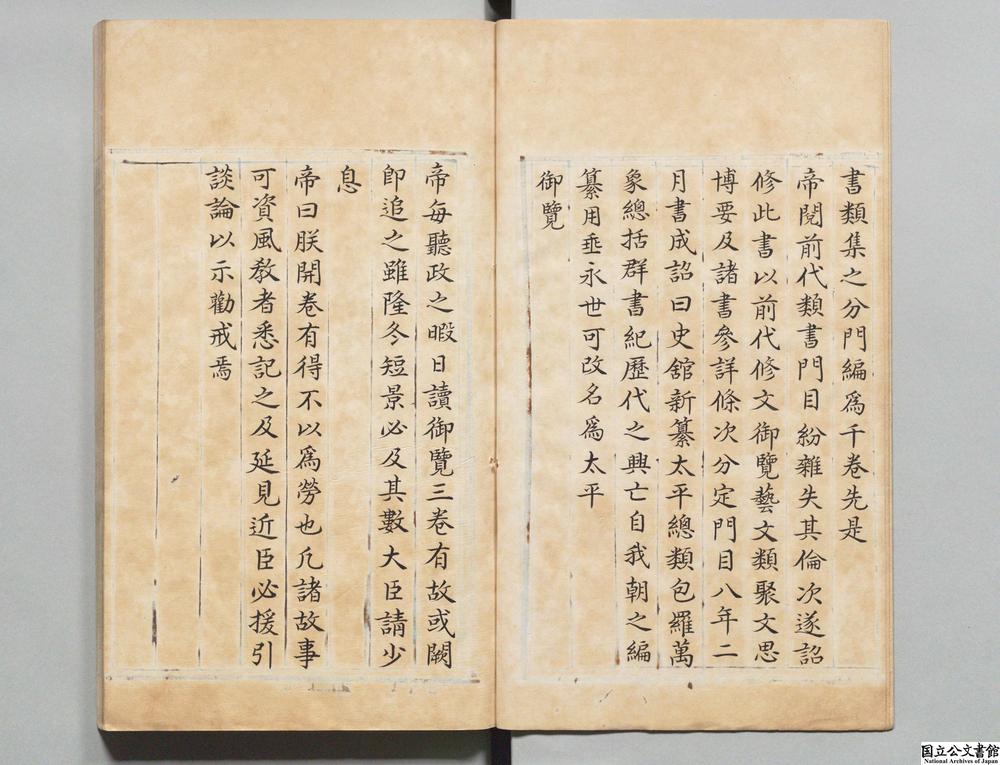 書類集之分門編爲千卷先是
帝閱前代類書門目紛雜失其倫次遂詔
修此書以前代修文御覽藝文類聚文思
博要及諸書參詳條次分定門目八年二
月書成詔曰史舘新纂太平總類包羅萬
象總括群書紀歷代之興亡自我朝之編
纂用垂永世可改名爲太平
御覽
帝每聽政之暇日讀御覽三卷有故或闕
卽追之雖隆冬短景必及其數大臣請少
息
帝曰朕開卷有得不以爲勞也凡諸故事
可資風敎者悉記之及延見近臣必援引
談論以示勸戒焉
国立公文書館
National Archives of Japan